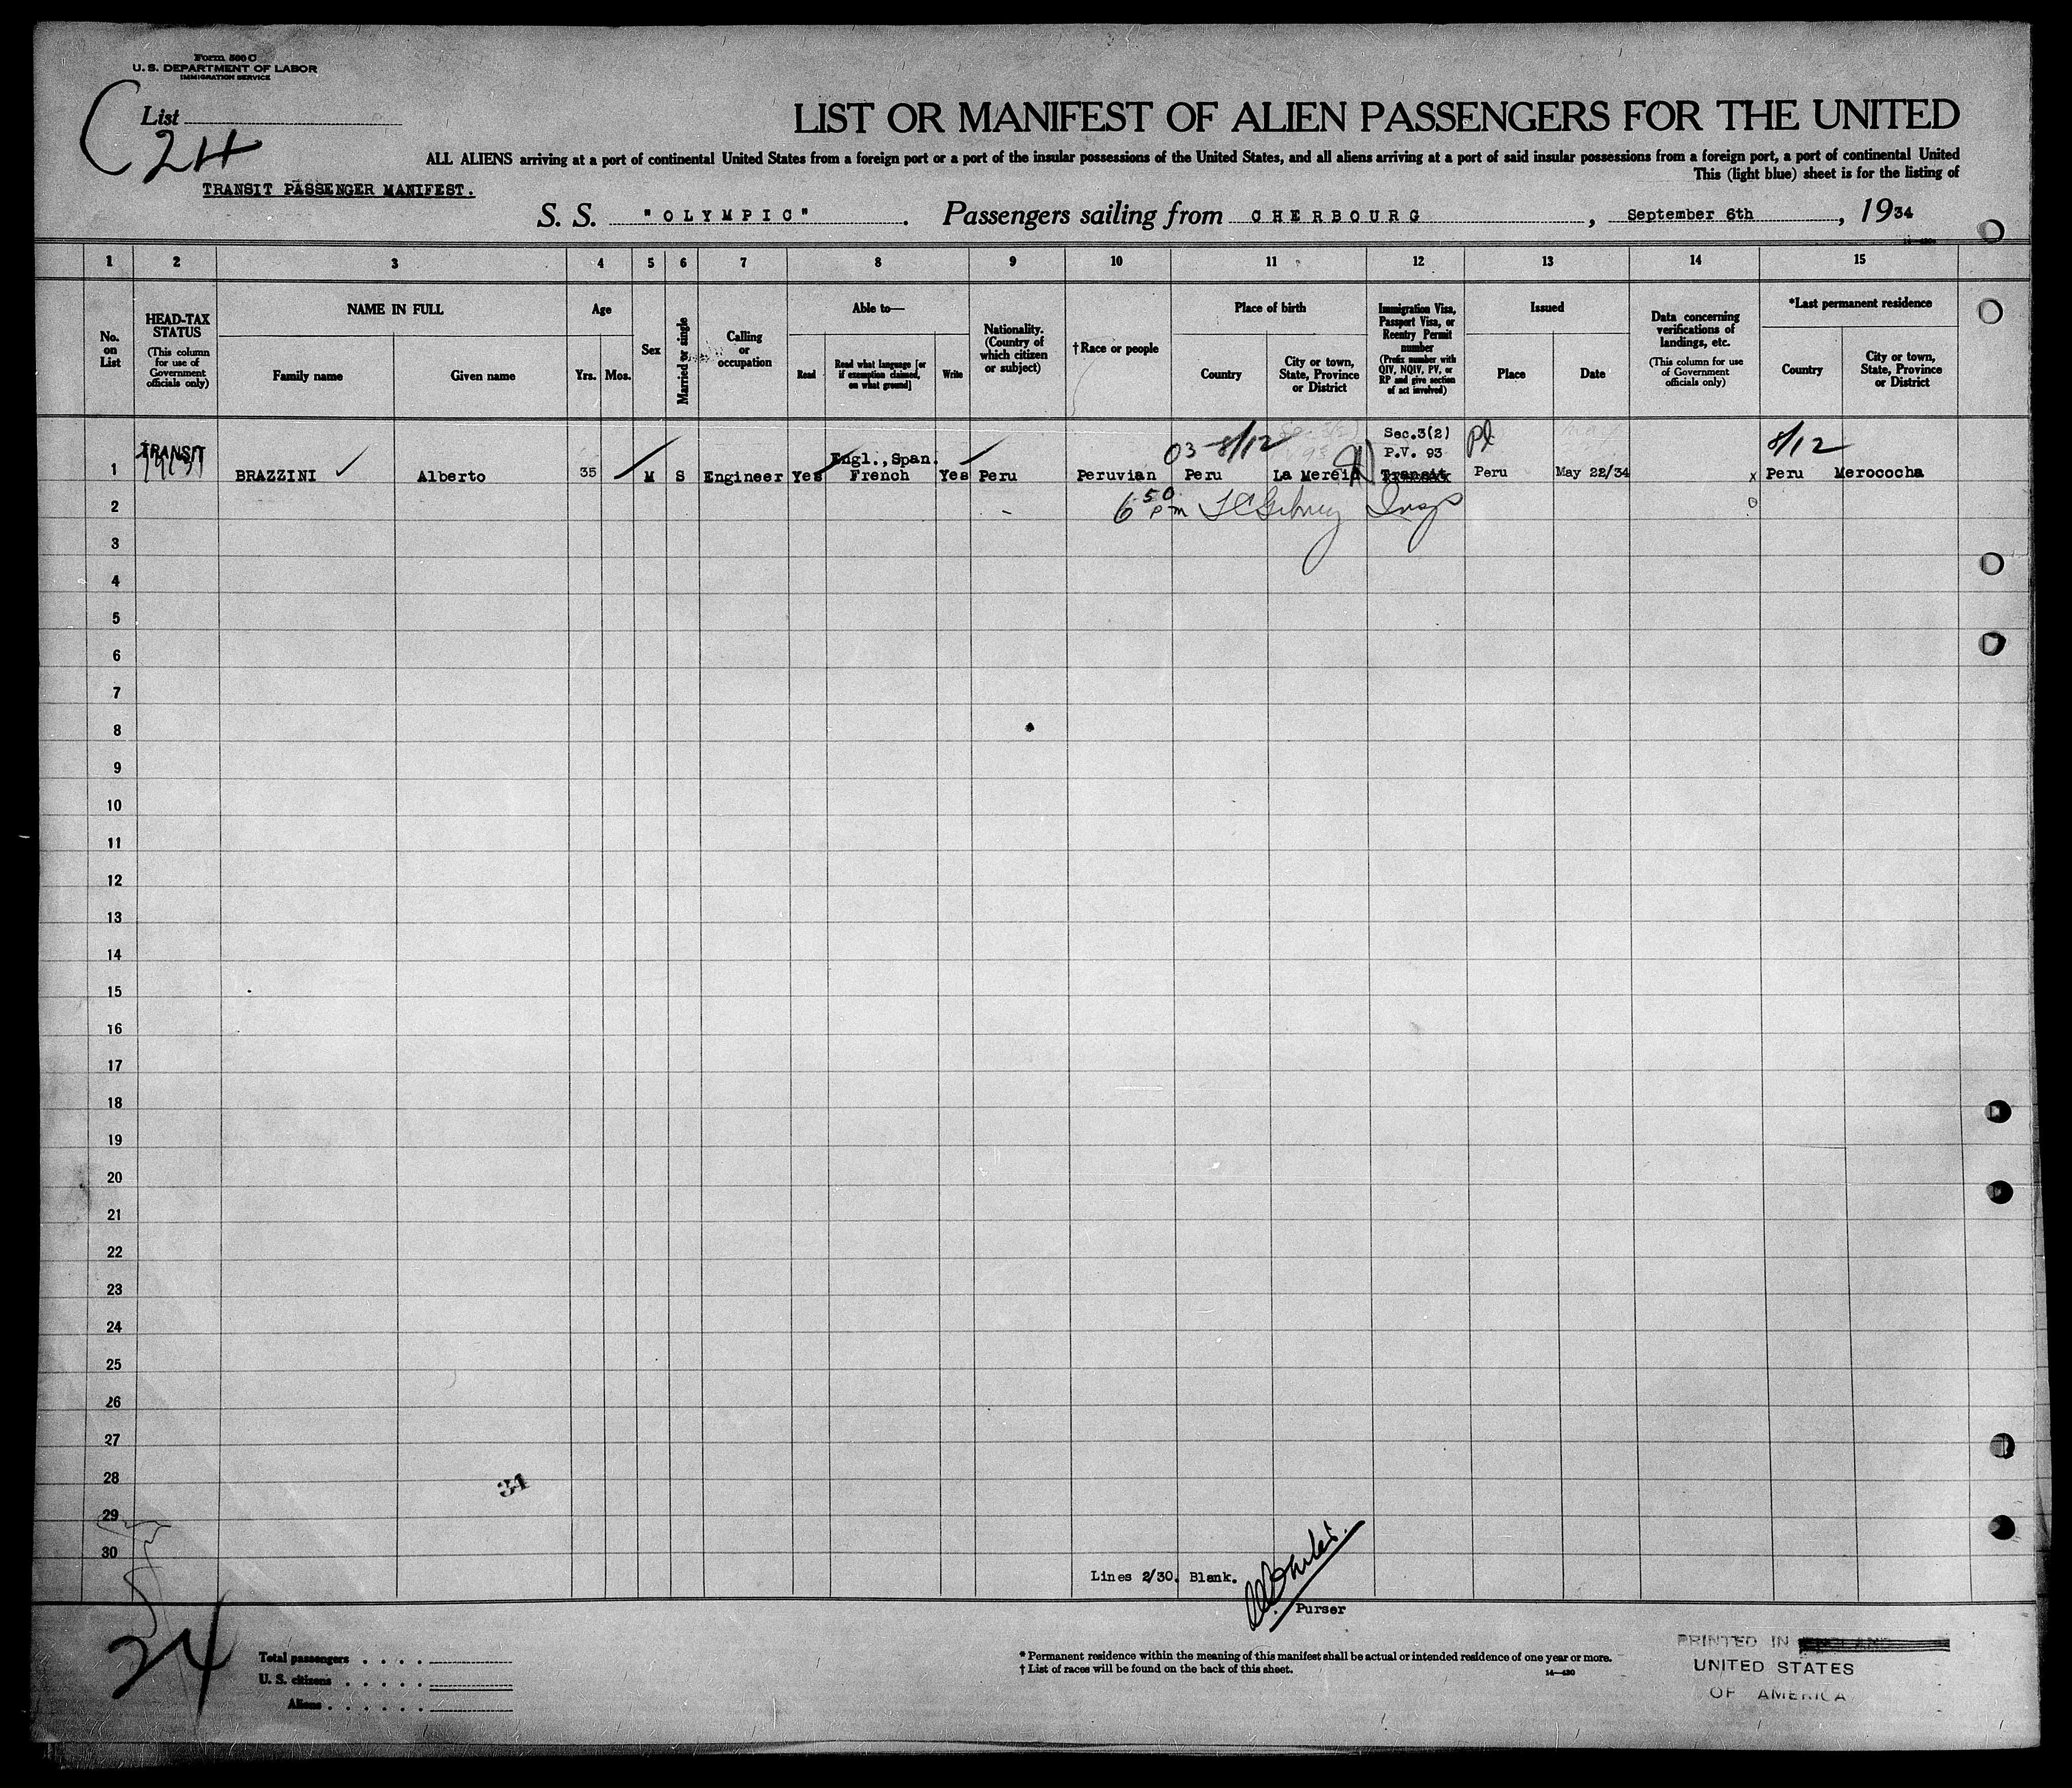 Form 500 C
U. S. DEPARTMENT OF LABOR
IMMIGRATION SERVICE
List
24
LIST OR MANIFEST OF ALIEN PASSENGERS FOR THE UNITED
ALL ALIENS arriving at a port of continental United States from a foreign port or a port of the insular possessions of the United States, and all aliens arriving at a port of said insular possessions from a foreign port, a port of continental United
This (light blue) sheet is for the listing of
TRANSIT PASSENGER MANIFEST.
S. S. "OLYMPIC". Passengers sailing from CHERBOURG, September 6th, 1934
1 2 3 4 5 6 7 8 9 10 11 12 13 14 15
No. on List
HEAD-TAX STATUS
(This column for use of Government officials only)
NAME IN FULL
Family name
Given name
Age
Yrs. Mos.
Sex
Married or single
Calling or occupation
Able to—
Read
Read what language [or if exemption claimed, on what ground]
Write
Nationality. (Country of which citizen or subject)
†Race or people
Place of birth
Country
City or town, State, Province or District
Immigration Visa, Passport Visa, or Reentry Permit number
(Prefix number with QIV, NQIV, PV, or RP and give section of act involved)
Issued
Place
Date
Data concerning verifications of landings, etc.
(This column for use of Government officials only)
*Last permanent residence
Country
City or town, State, Province or District
TRANSIT
03-8/12
Sec.3(2)
8/12
Engl.,Span.
P.V. 93
1 BRAZZINI Alberto 35 M S Engineer Yes French Yes Peru Peruvian Peru La Transit Peru May 22/34 x Peru Merococha
2
6 50 pm Insp
3
4
5
6
7
8
9
10
11
12
13
14
15
16
17
18
19
20
21
22
23
24
25
26
27
28
34
29
30
Lines 2/30. Blank.
Purser
24
Total passengers
U. S. citizens
Aliens
* Permanent residence within the meaning of this manifest shall be actual or intended residence of one year or more.
† List of races will be found on the back of this sheet.
14—430
PRINTED IN
UNITED STATES
OF AMERICA